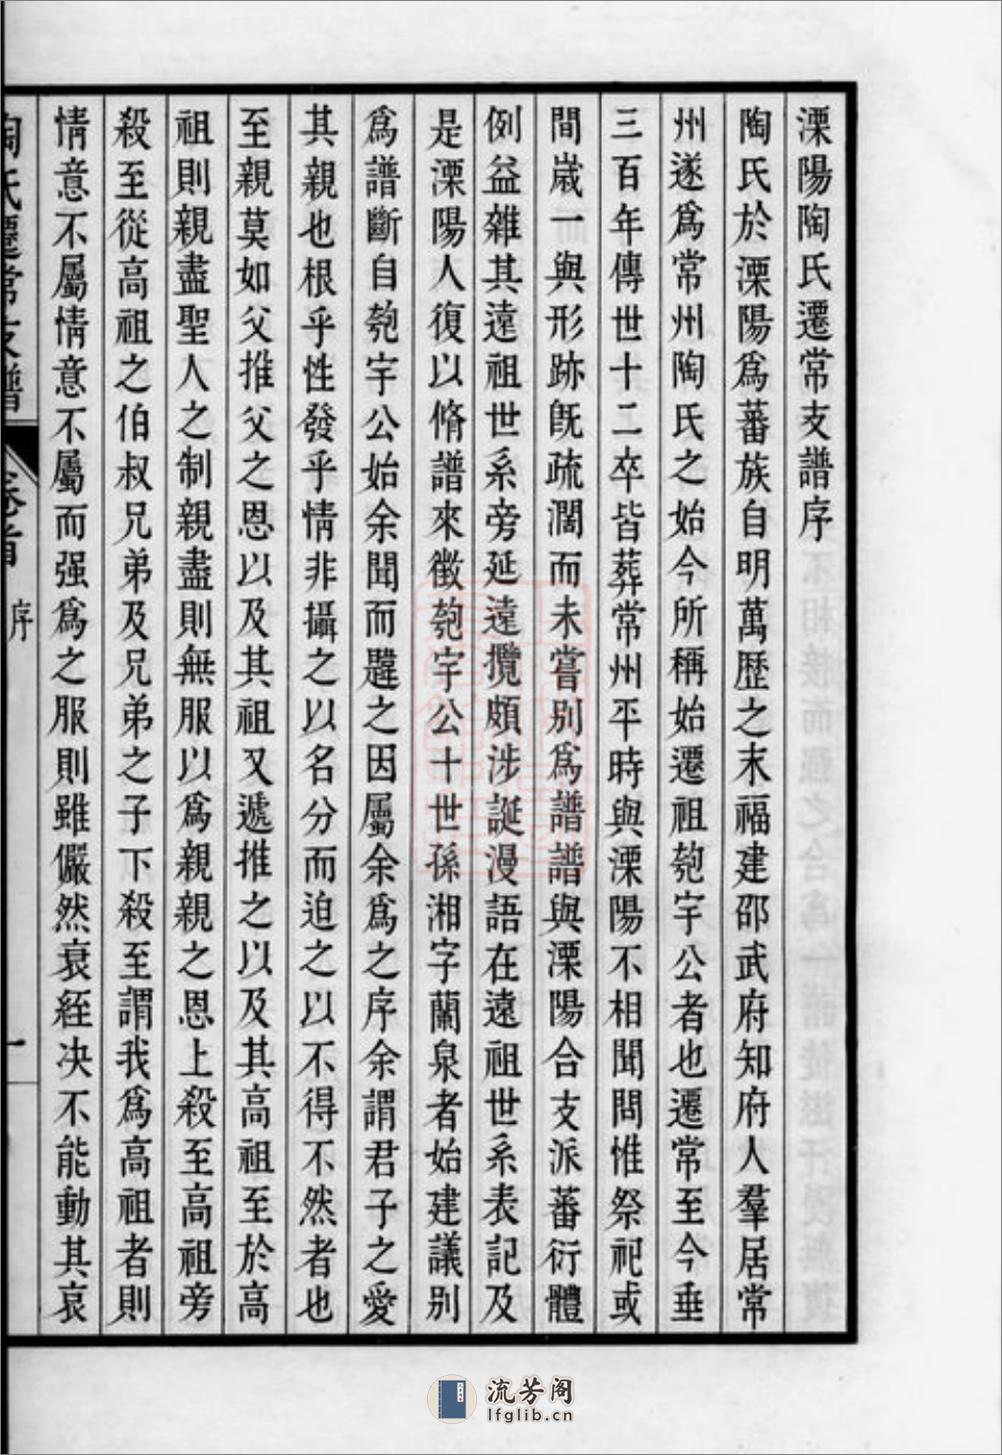 溧陽陶氏遷常支譜序
陶氏於溧陽爲蕃族自明萬歷之末福建邵武府知府人羣居常
州遂爲常州陶氏之始今所稱始遷祖匏宇公者也遷常至今垂
三百年傳世十二卒皆葬常州平時與溧陽不相聞問惟祭祀或
間歲一與形跡旣疏濶而未嘗別爲譜譜與溧陽合支派蕃衍體
例益雜其遠祖世系旁延遠攬頗涉誕漫語在遠祖世系表記及
是溧陽人復以脩譜來徵匏宇公十世孫湘字蘭泉者始建議別
爲譜斷自匏宇公始余聞而韙之因屬余爲之序余謂君子之愛
其親也根乎性發乎情非攝之以名分而迫之以不得不然者也
至親莫如父推父之恩以及其祖又遞推之以及其高祖至於高
祖則親盡聖人之制親盡則無服以爲親親之恩上殺至高祖旁
殺至從高祖之伯叔兄弟及兄弟之子下殺至謂我爲高祖者則
情意不屬情意不屬而强爲之服則雖儼然衰絰决不能動其哀
陶氏遷常支譜 卷首 序 一
流芳阁
lfglib.cn